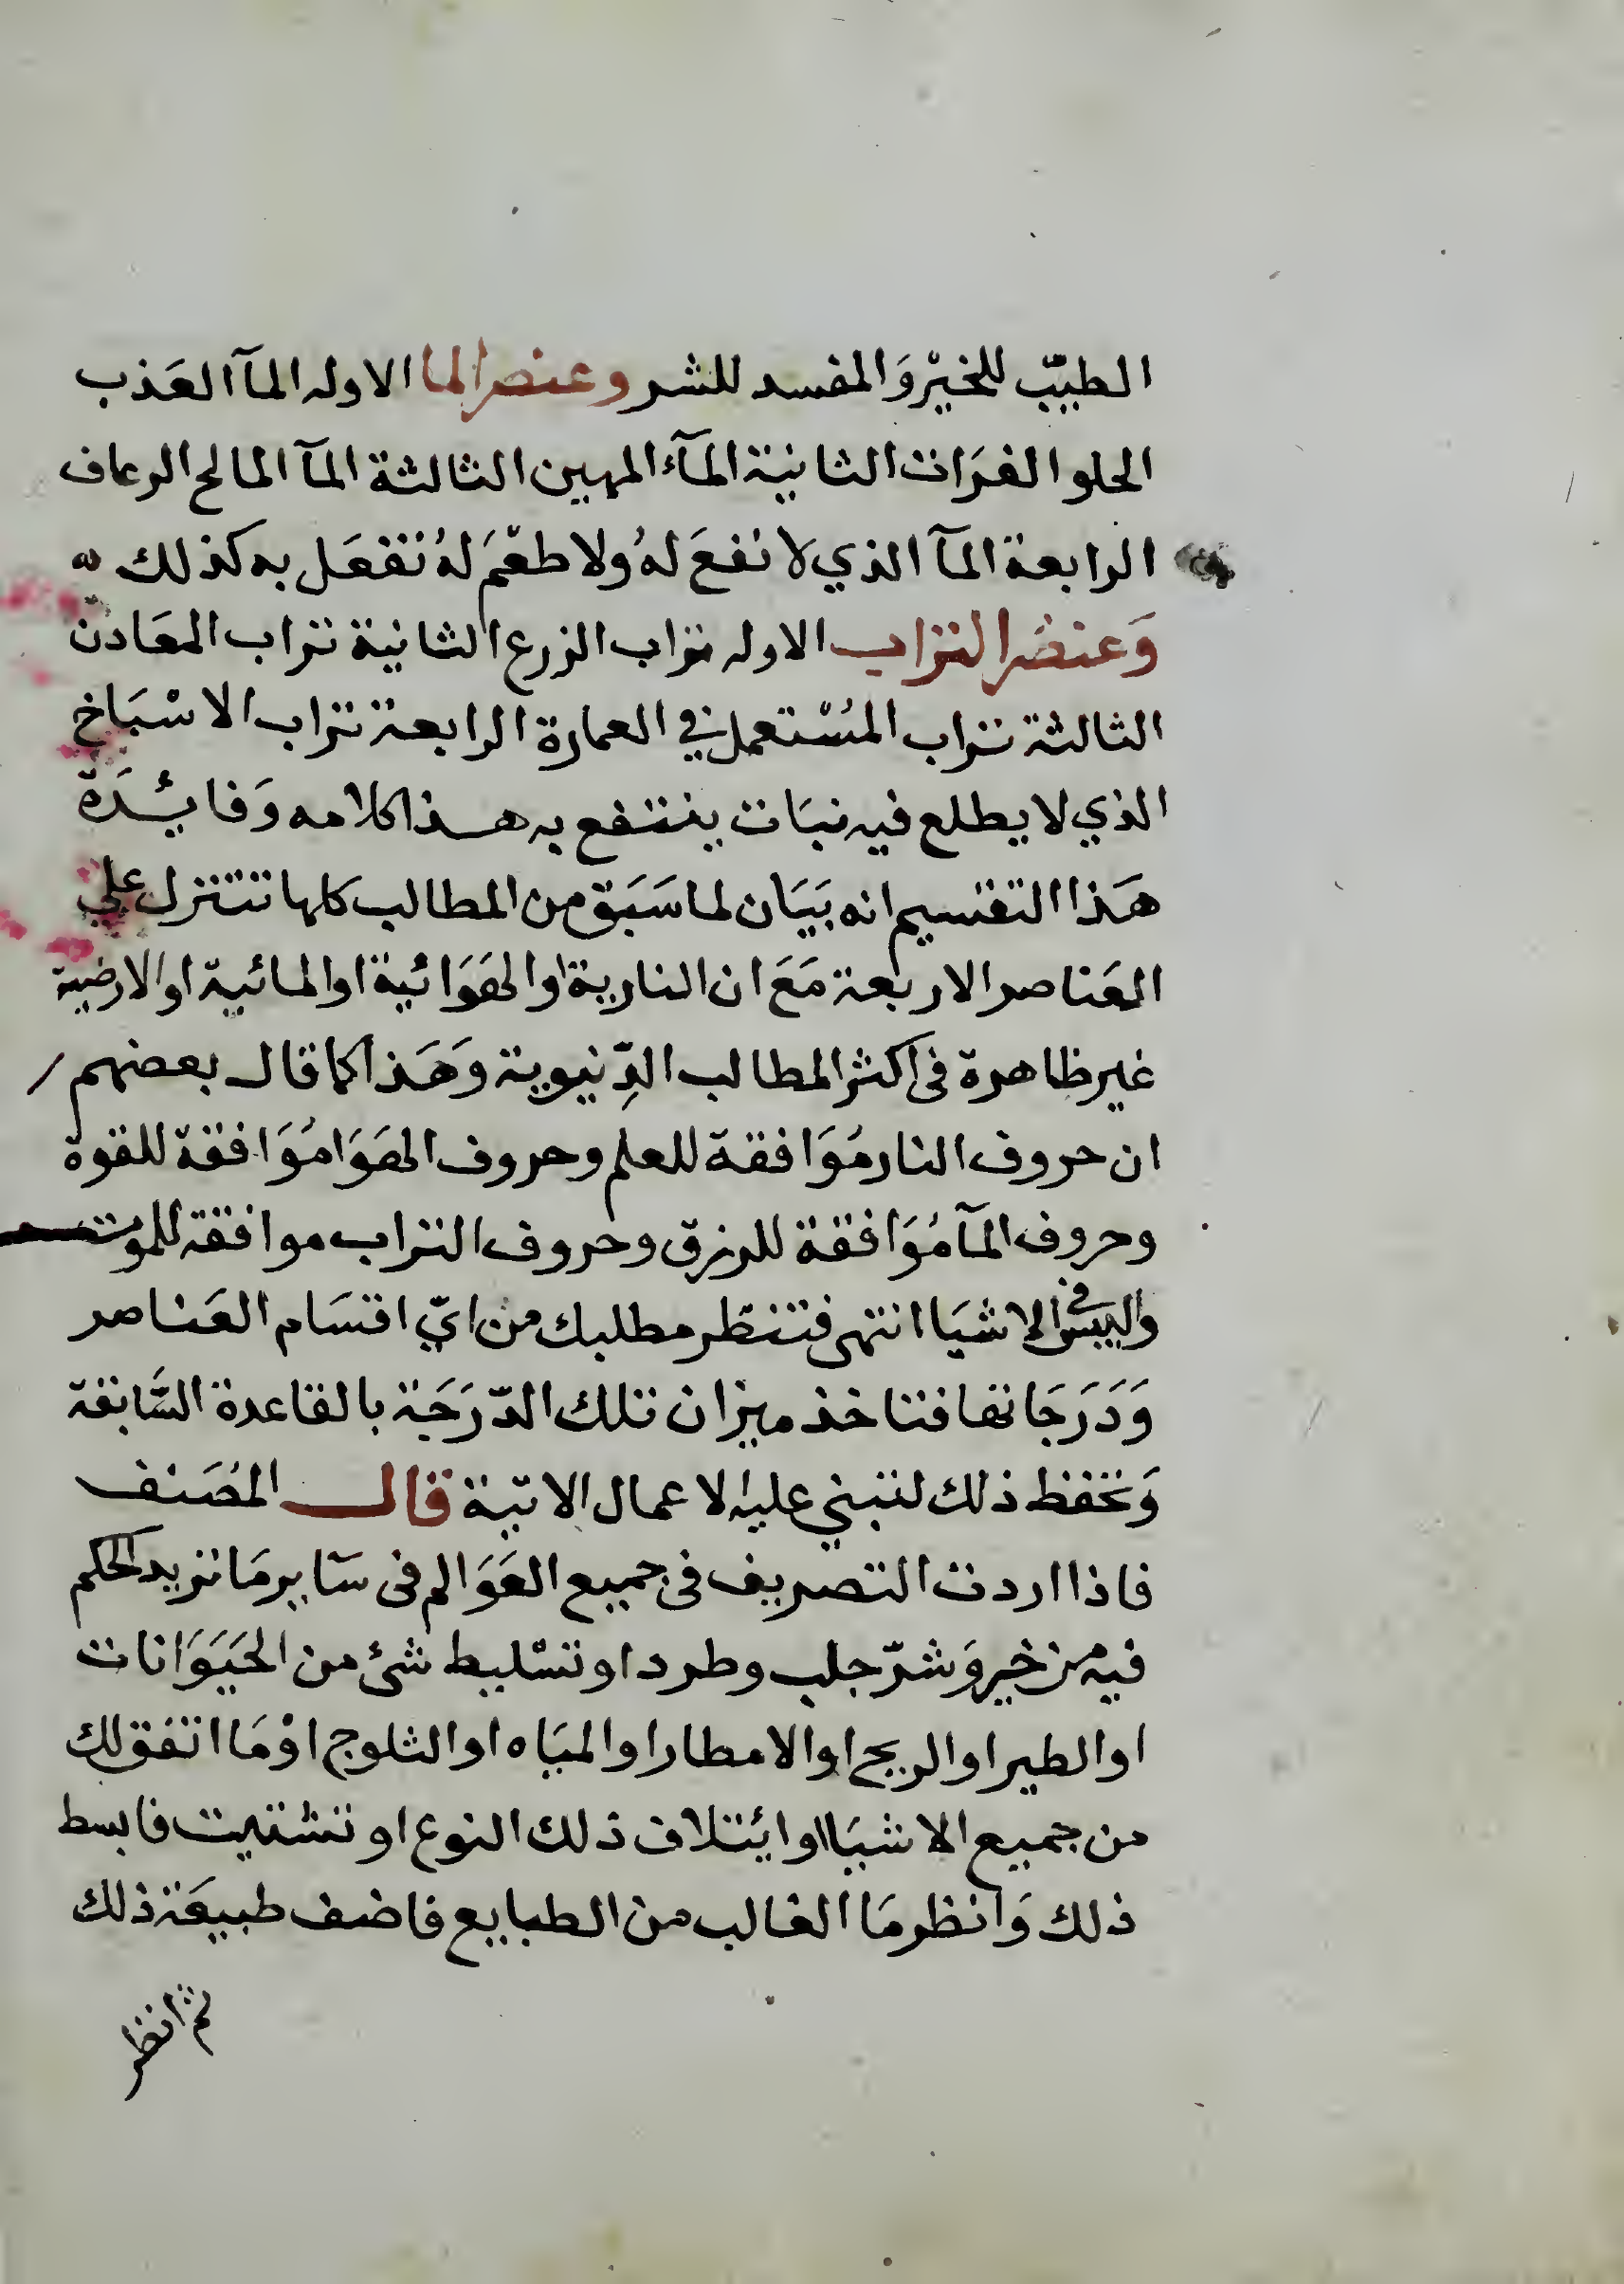 الطيّب للخيْر وَالمفسد للشر وعنصر الما الاوله المآ العَذب
الحلو الفرَات الثانية المآء المهين الثالثة المآ المالح الرعاف
الرابعة المآ الذي لا نفعَ لهُ ولا طعْمَ لهُ تفعَل به كذلك
وَعنصُر التراب الاوله تراب الزرع الثانية تراب المعَادن
الثالثة تراب المُسْتعمل في العمارة الرابعة تراب الاسْبَاخ
الذي لا يطلع فيه نبَات ينتفع به هذا كلامه وَفائدَة
هَذا التقسيم انه بَيَان لما سَبَق من المطالب كلها تتنزل علي
العَناصر الاربعة مَعَ ان النارية او الهَوَائية او المائية او الارضية
غير ظاهرة فى اكثر المطالب الدِّنيوية وَهَذا كما قال بعضهم
ان حروف النار مُوَافقة للعلم وحروف الهوَا مُوَافقة للقوة
وحروف المآ مُوَافقة للرزق وحروف التراب موافقة للموت
واليبس فى الاشيَا انتهى فتنظر مطلبك من ايّ اقسَام العَناصر
وَدَرَجَاتها فتاخذ ميزان تلك الدّرَجَة بالقاعدة السَّابقة
وَتحفظ ذلك لتبني عليه الاعمال الاتية قال المُصَنف
فاذا اردت التصريف فى جميع العَوَالم فى سَآير مَا تريد الحكم
فيه من خير وَشرّ جلب وطرد او تسْليط شئ من الحَيَوَانات
او الطير او الريح او الامطار او الميَاه او الثلوج اوْ مَا اتفق لك
من جميع الاشيَا او ائتلاف ذلك النوع او تشتيت فابسط
ذلك وَانظر مَا الغالب من الطبايع فاضف طبيعَة ذلك
ثم انظر